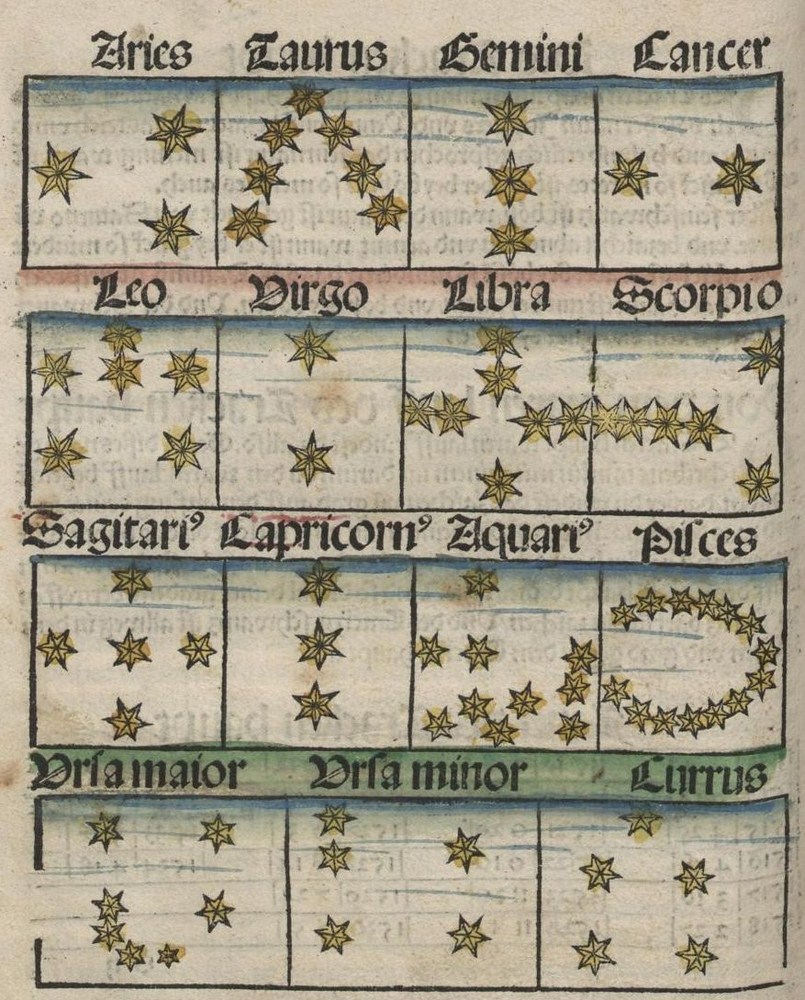 Aries Taurus Gemini Cancer
Leo Virgo Libra Scorpio
Sagitariꝰ Capricornꝰ Aquariꝰ Piſces
Vrſa maior Vrſa minor Currus